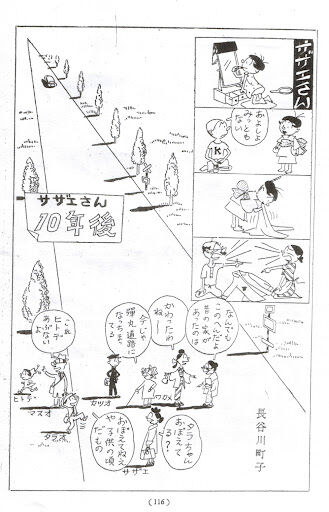 サザエさん
およしよ
みっとも
ない
K
サザエさん
10年後
なんでも
このへんだよ
昔の家が
あったのは
かわったわ
ねー
今じゃ
弾丸道路に
なっちまっ
てる
これ
ヒトデ
あぶない
よ
ヒトデ
マスオ
タラオ
カツオ
ワカメ
タラちゃん
おぼえて
る?
おぼえてねえ
や子供の頃
だもの
サザエ
長谷川町子
(116)